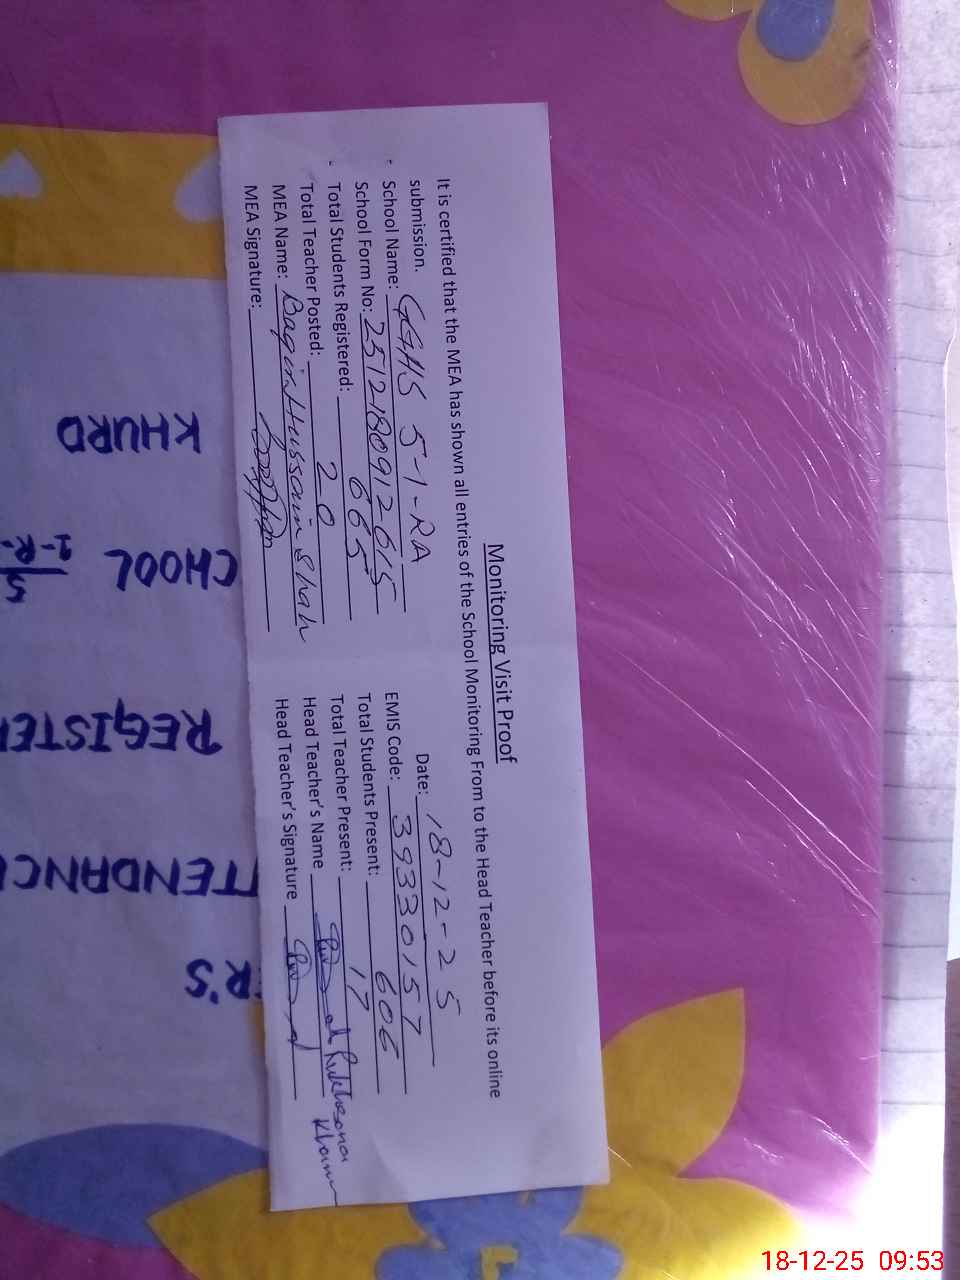 Monitoring Visit Proof
It is certified that the MEA has shown all entries of the School Monitoring From to the Head Teacher before its online
submission. Date: 18-12-25
School Name: GGHS 5-1-RA EMIS Code: 39330157
School Form No: 2512180912615 Total Students Present: 606
Total Students Registered: 665 Total Teacher Present: 17
Total Teacher Posted: 20 Head Teacher's Name Rukhsana
MEA Name: Baqir Hussain Shah Head Teacher's Signature
MEA Signature:
ER'S
TTENDANC
REGISTE
CHOOL 5/1-R
KHURD
18-12-25 09:53